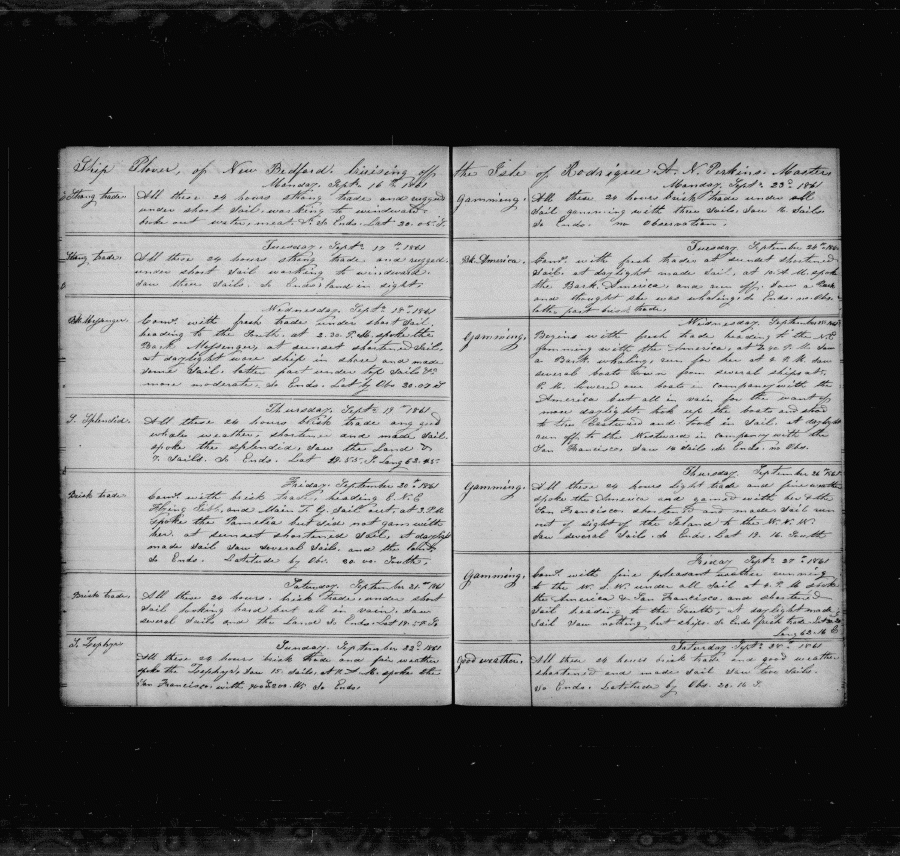 Ship Plover, of New Bedford. Cruising off
Monday. Sept. 16th 1861
Strong trade. All these 24 hours strong trade and rugged
under short Sail. working to windward.
broke out water, meat. So Ends. Lat 20.05. S.
Tuesday. Sept. 17th 1861
Strong trade. All these 24 hours strong trade, and rugged
under short Sail working to windward.
Saw three Sails. So Ends. land in sight.
Wednesday. Sept. 18th 1861
Bk. Messenger. Comd. with fresh trade under short Sail
heading to the South. at 2.30. P.M. spoke the
Bark Messenger, at sunset shortened Sail.
At daylight wore ship in shore and made
some Sail. latter part under top Sails
more moderate. So Ends. Lat by Obs 20.07. S
Thursday. Sept. 19th 1861
S. Splendid. All these 24 hours brisk trade and good
whale weather, shortened and made Sail.
spoke the Splendid, Saw the Land &
7. Sails. So Ends. Lat 19.55. S. Long 62.45.
Friday. September 20th 1861
Brisk trade. Comd. with brisk trade heading E.N.E
Flying Jib, and Main T. G. Sail set, at 2. P.M
spoke the Pamelia but did not gam with
her. at sunset shortened Sail, at daylight
made Sail saw several Sails. and the
So Ends. Latitude by Obs. 20.00. South.
Saturday. September 21st 1861
Brisk trade. All these 24 hours. brisk trade, under short
Sail looking hard but all in vain. Saw
several Sails and the Land So Ends. Lat 19.58. S
Sunday. September 22d 1861
S. Zephyr. All these 24 hours brisk trade and fine weather
spoke the Zephyr. Saw 15. Sails. at M. spoke the
San Francisco, with So Ends.
the Isle of Rodrigue. A. N. Perkins. Master
Monday. Sept. 23d 1861
Gamming. All these 24 hours brisk trade under all
Sail gamming with three Sails. Saw 16 Sails.
So Ends. no Observation.
Tuesday. September 24th 1861
Bk. America. Comd. with fresh trade at sunset shortened
Sail. at daylight made Sail, at 10. A.M. spoke
the Bark America, and run off. Saw a Bark
and thought she was whaling. So Ends. no Obs.
latter part brisk trade.
Wednesday. September 25th 1861
Gamming. Begins with fresh trade heading to the N.E
gamming with the America, at P.M. Saw
a Bark whaling, run for her at 2 P.M Saw
several boats down from several ships at
P.M. lowered our boats in company with the
America but all in vain for the want of
more daylight. took up the boats and stood
to the Eastward and took in Sail. at daylight
run off to the Westward in company with the
San Francisco, Saw 10 Sails. So Ends. no Obs.
Thursday. September 26th 1861
Gamming. All these 24 hours light trade and fine weather
spoke the America and gamed with her & the
San Francisco. shortened and made Sail run
out of sight of the Island to the W.N.W.
Saw several Sails. So Ends. Lat 19. 16. South
Friday. Sept. 27th 1861
Gamming. Comd. with fine pleasant weather running
to the W.S.W. under all Sail at P.M spoke
the America & San Francisco. and shortened
Sail heading to the South, at daylight made
Sail saw nothing but ships. So Ends fresh trade. Lat
Long 62.16 E
Saturday. Sept. 28th 1861
Good weather. All these 24 hours brisk trade and good weather
shortened and made Sail saw two Sails.
So Ends. Latitude by Obs. 20.16 S.